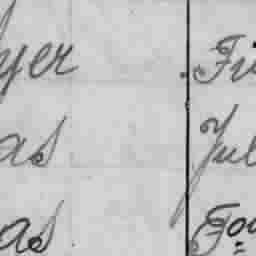 yer Fi
as Jul
as Fou